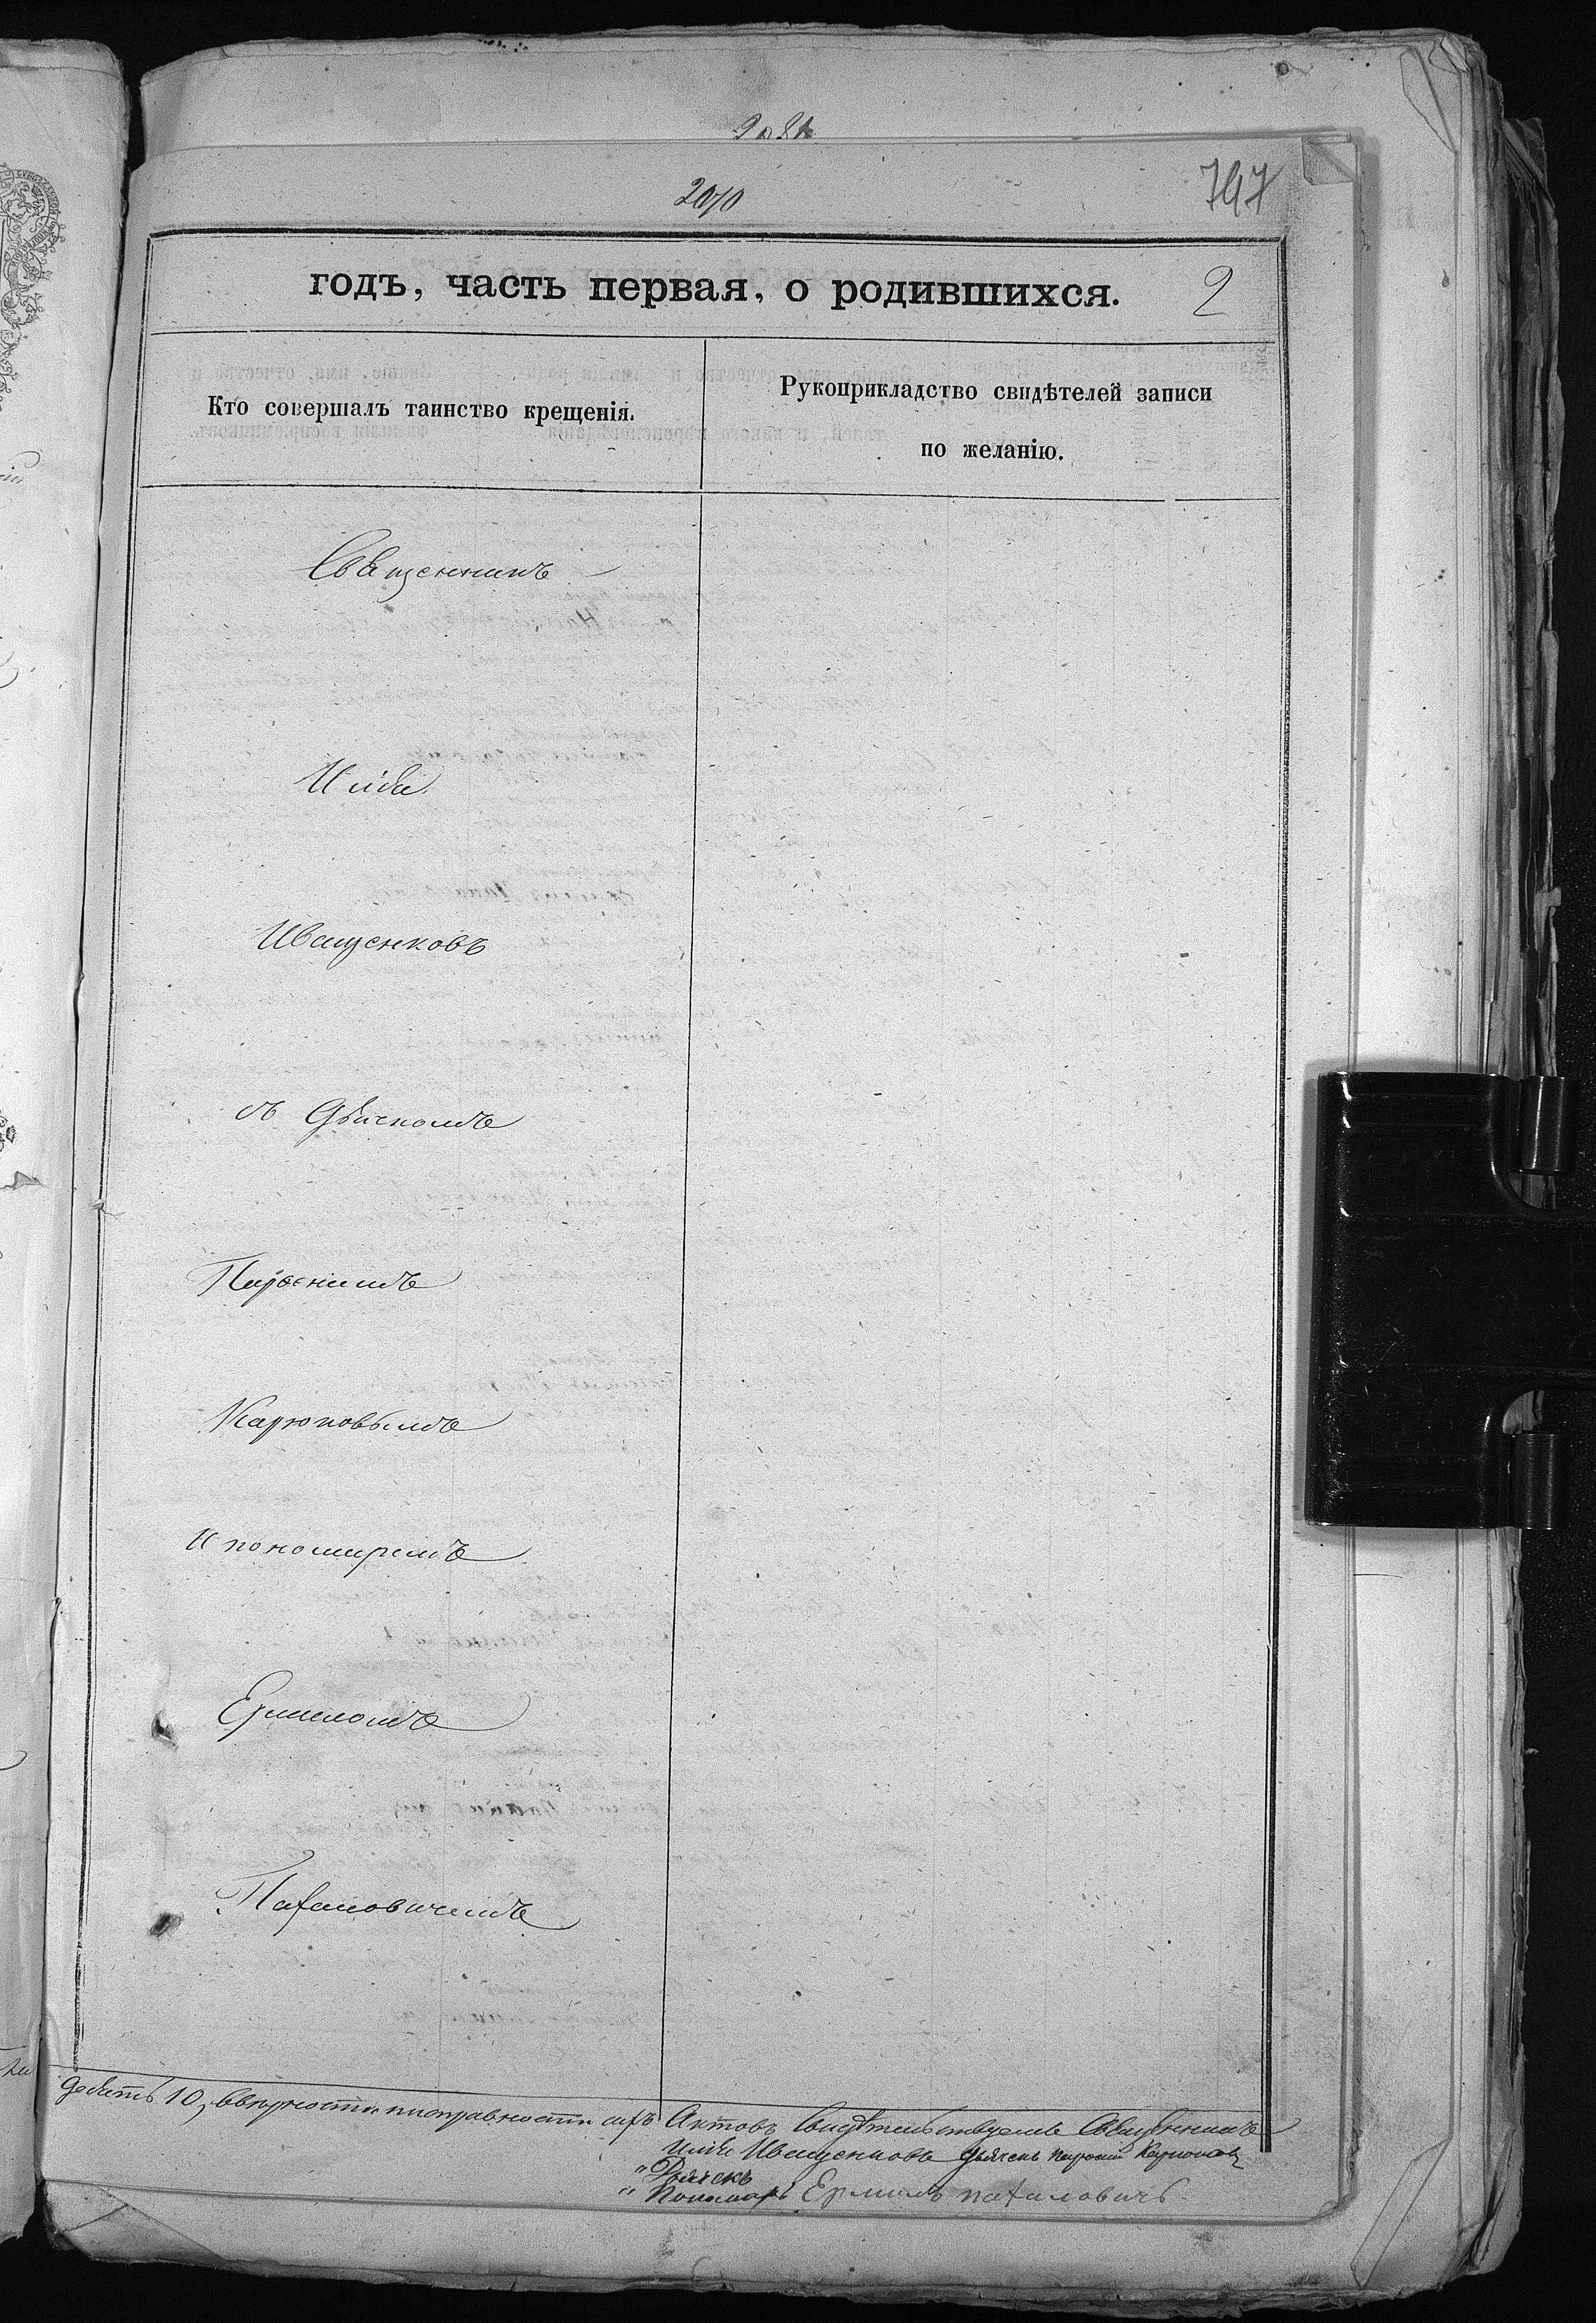 797
годъ, часть первая, о родившихся. 2
Кто совершалъ таинство крещенія.
Рукоприкладство свидѣтелей записи
по желанію.
Священникъ
Илія
Иващенковъ
съ Дьячкомъ
Парөеніимъ
Карюковымъ
И пономаремъ
Ермиломъ
Паѳаловичемъ
девять 10, вѣрности и исправности сихъ Актовъ Свидѣтельствуемъ Священникъ
Илія Иващенковъ Дьячекъ
„ Дьячекъ
„ Пономарь Ермилъ Паѳаловичъ